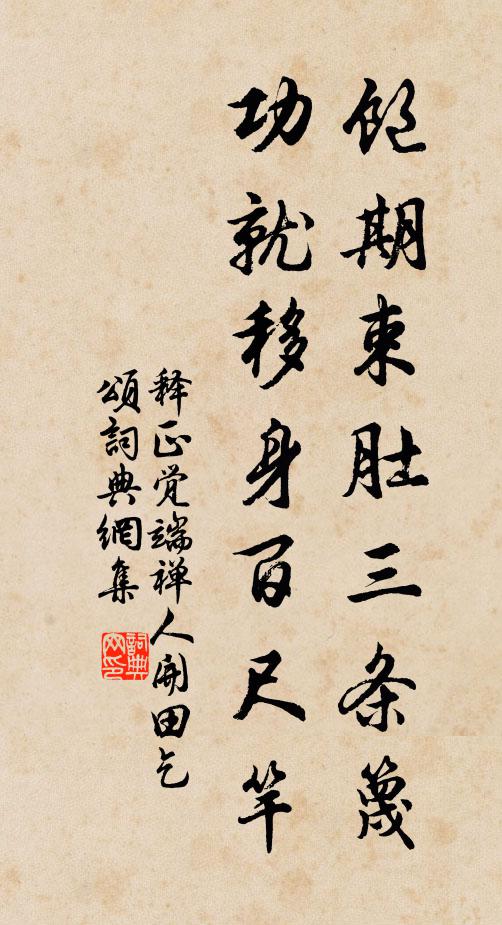 饱期束肚三条篾
功就移身百尺竿
释正觉端禅人开田乞
颂词典網集
詞典网印